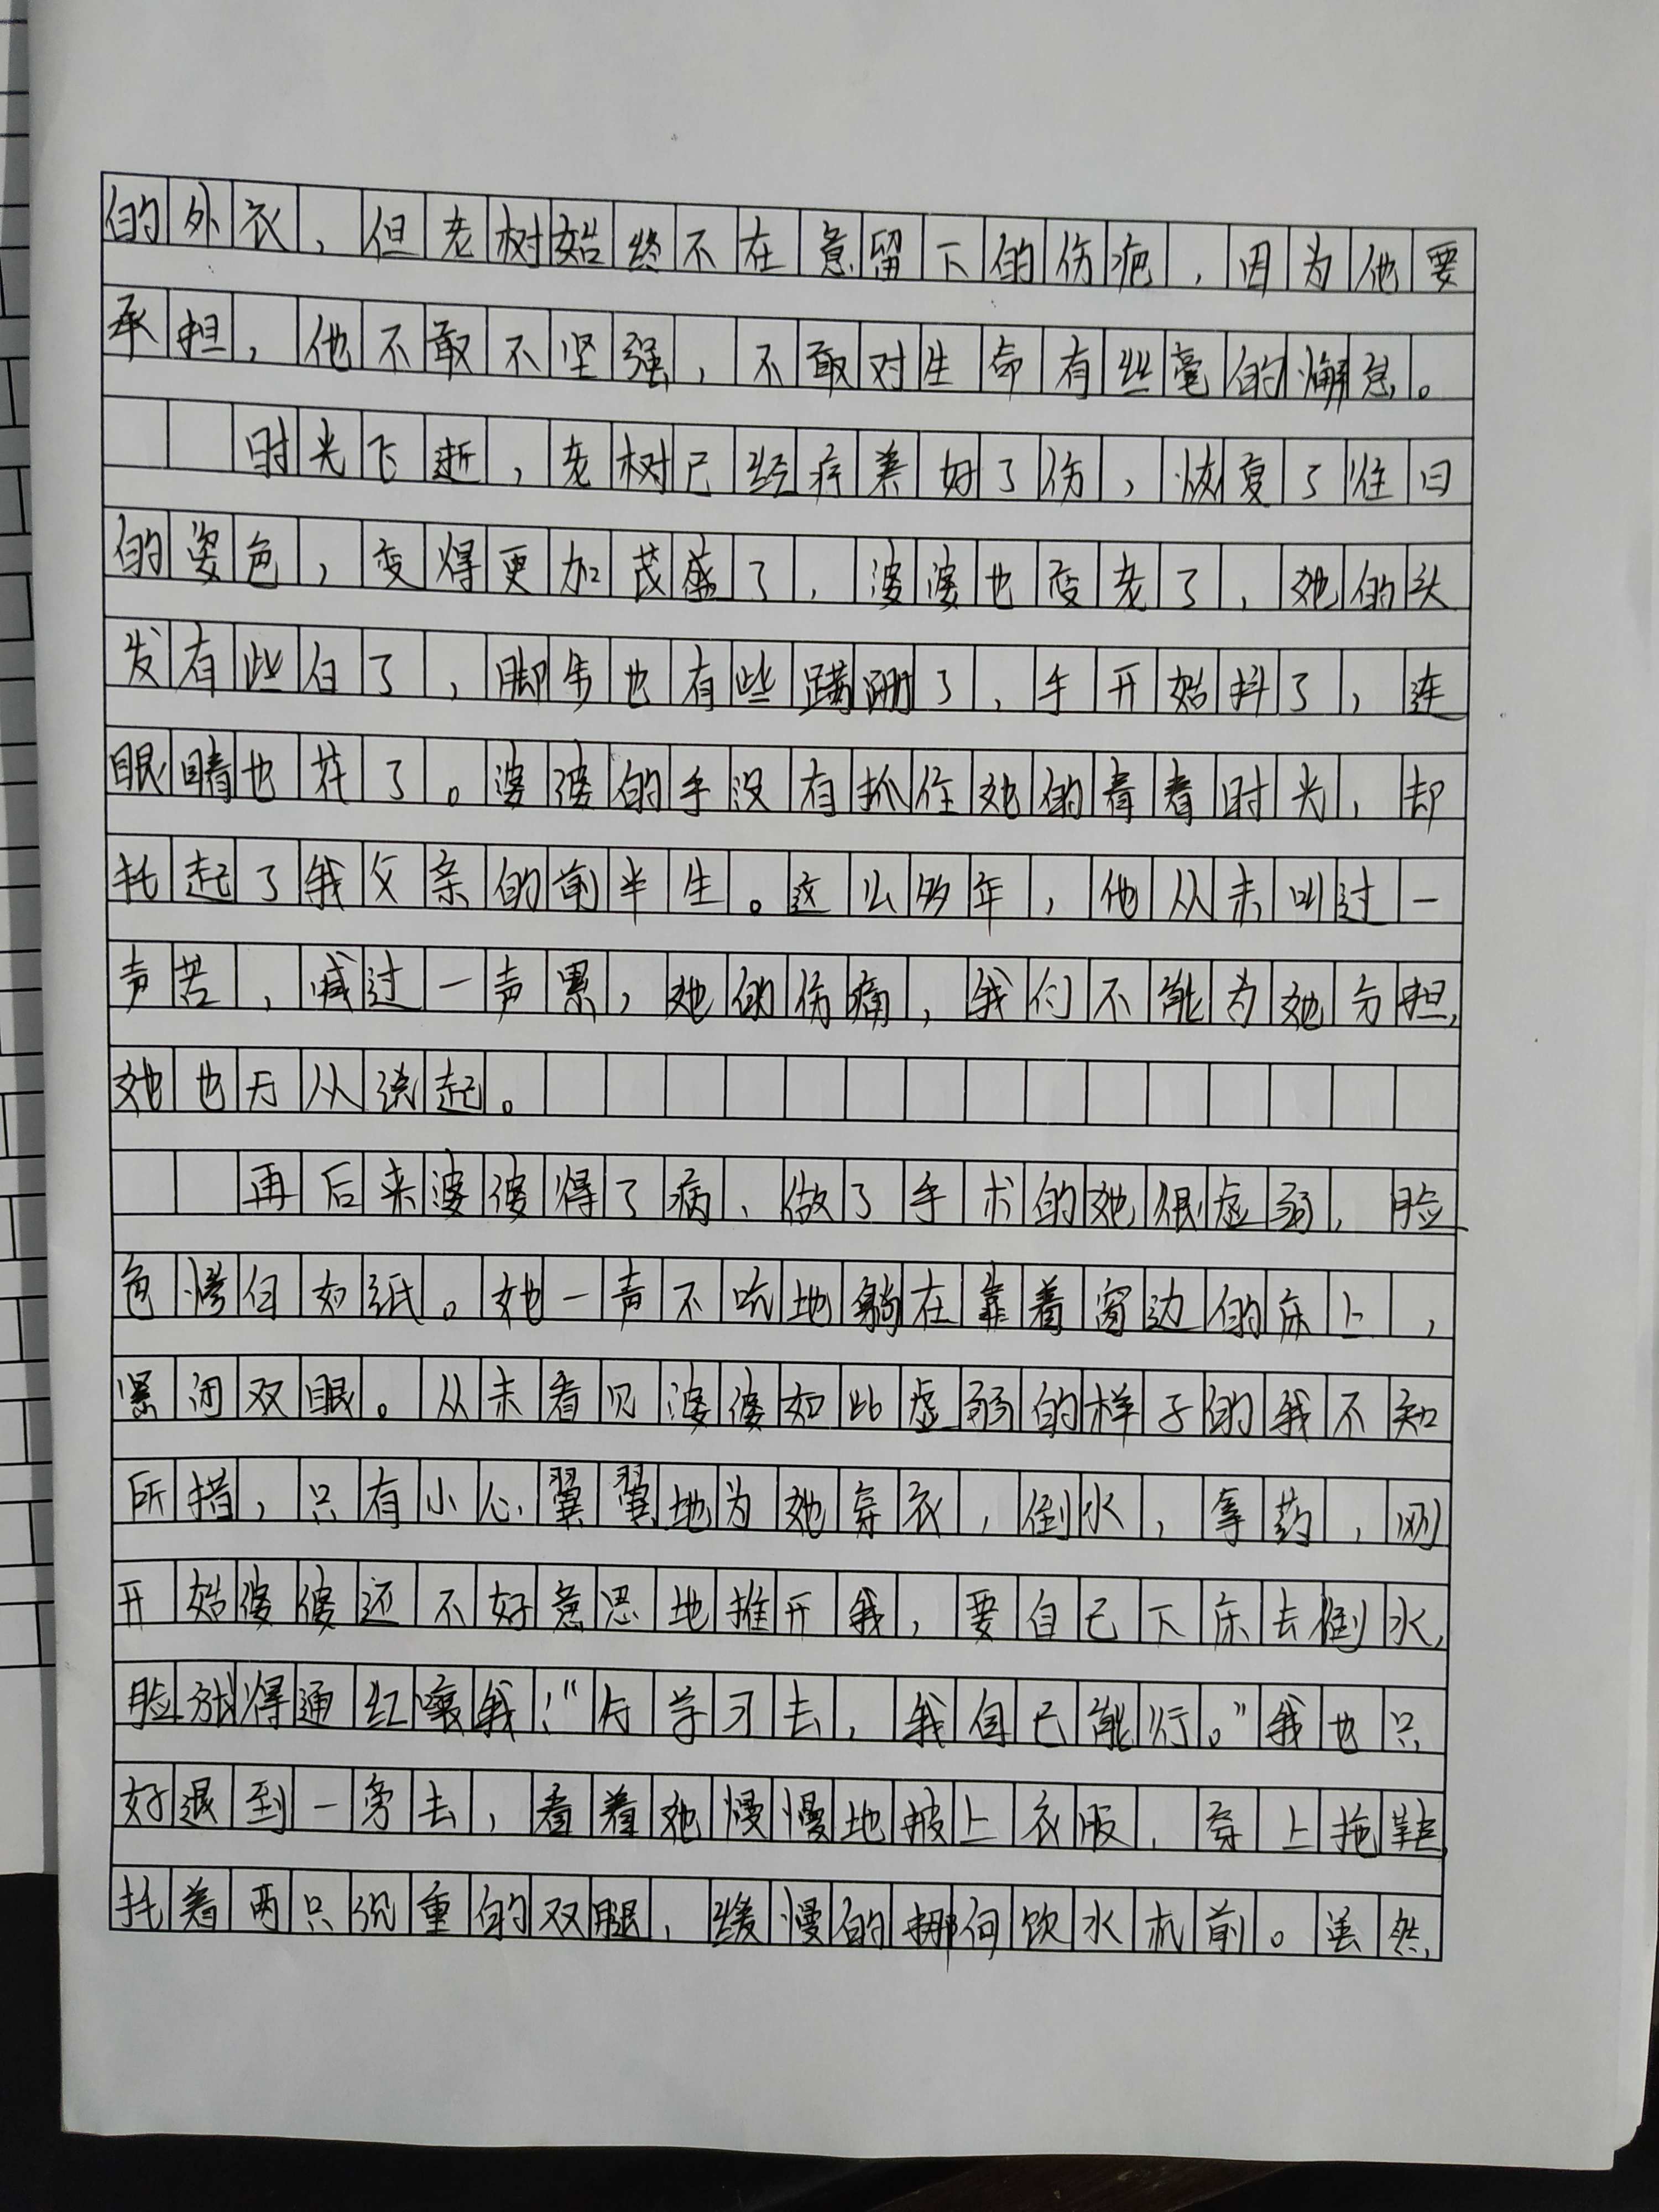 的外衣，但老树始终不在意留下的伤疤，因为他要
承担，他不敢不坚强，不敢对生命有丝毫的懈怠。
时光飞逝，老树已经疗养好了伤，恢复了往日
的姿色，变得更加茂盛了，婆婆也变老了，她的头
发有些白了，脚步也有些蹒跚了，手开始抖了，连
眼睛也花了。婆婆的手没有抓住她的着着时光，却
托起了我父亲的前半生。这么多年，他从未叫过一
声苦，喊过一声累，她的伤痛，我们不能为她分担，
她也无从说起。
再后来婆婆得了病，做了手术的她很虚弱，脸
色惨白如纸。她一声不吭地躺在靠着窗边的床上，
紧闭双眼。从未看见婆婆如此虚弱的样子的我不知
所措，只有小心翼翼地为她穿衣，倒水，拿药，刚
开始婆婆还不好意思地推开我，要自己下床去倒水，
脸涨得通红嚷我：“去学习去，我自己能行。”我也只
好退到一旁去，看着她慢慢地披上衣服，穿上拖鞋
托着两只沉重的双腿，缓慢的挪向饮水机前。虽然，